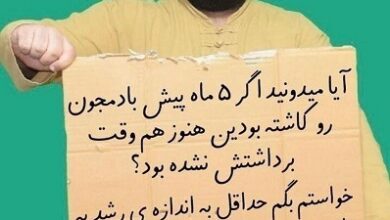 آیا میدونید اگر ۵ ماه پیش بادمجون
رو کاشته بودین هنوز هم وقت
برداشتش نشده بود؟
خواستم بگم حداقل به اندازه ی رشد یه